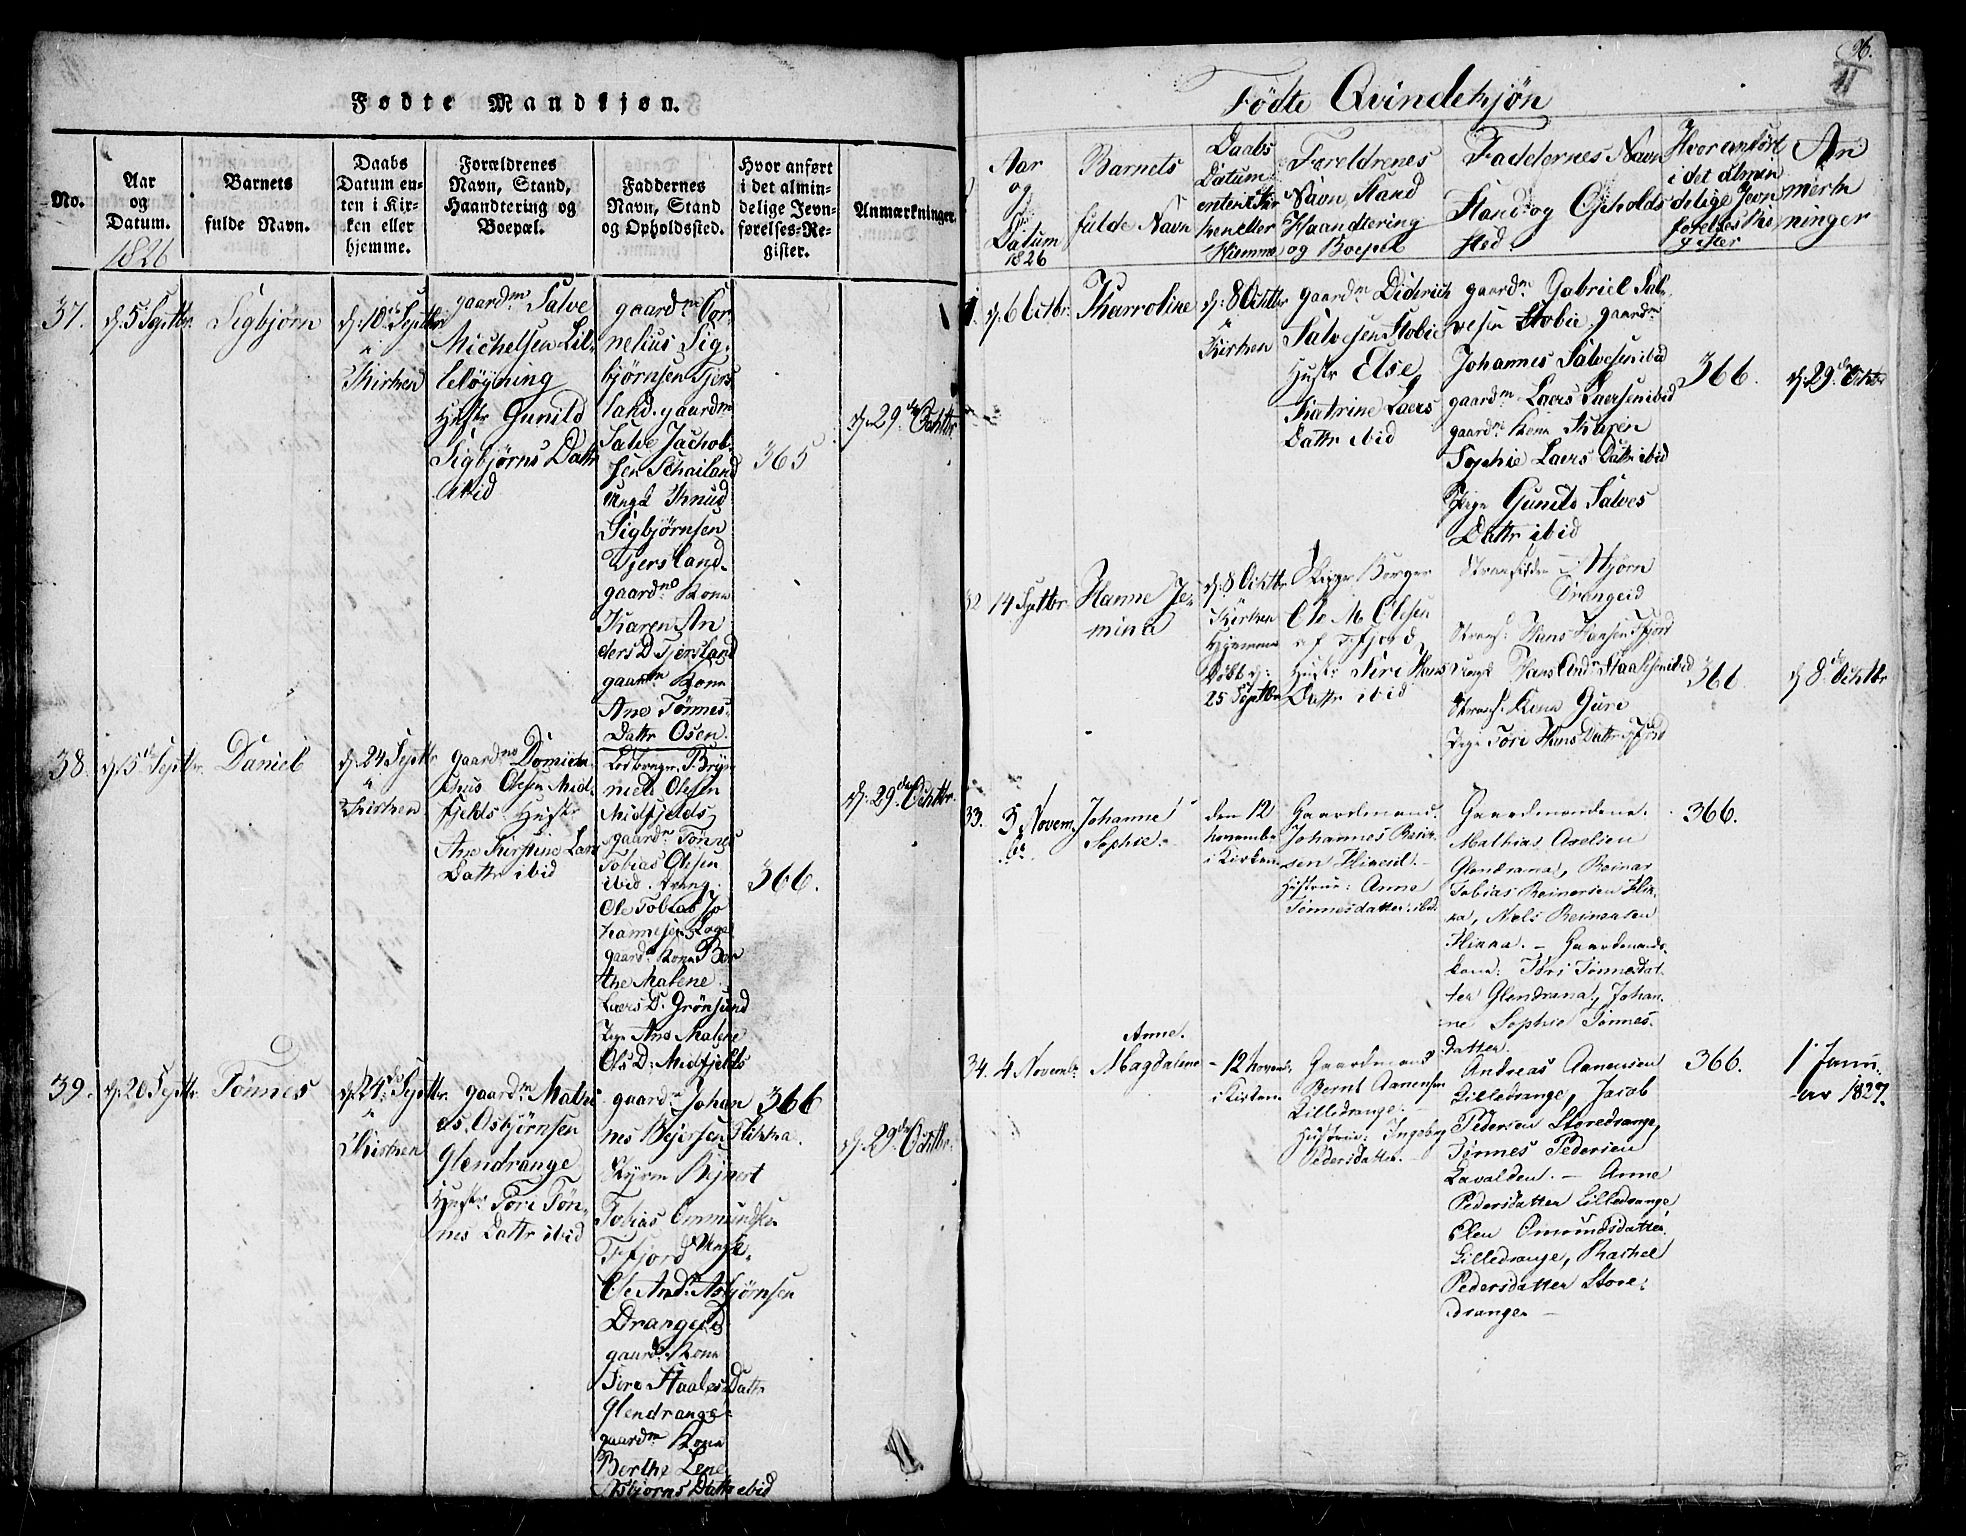 Fødte Mandkjøn.
No.
Aar
og
Datum.
1826
Barnets
fulde Navn.
Daabs
Datum en-
ten i Kir-
ken eller
hjemme.
Forældrenes
Navn, Stand,
Haandtering og
Boepæl.
Faddernes
Navn, Stand
og Opholdssted.
Hvor anført
i det almin-
delige Jevn-
førelses-Re-
gister.
Anmærkninger
37.
d. 5 Septbr.
Sigbjørn
d. 10 Septbr
i
Kirken
gaardm Salve
Michelsen Lil-
leløyning
Hustr Gunild
Sigbjørns Dattr
ibid
gaardm Cor-
nelius Sig-
bjørnsen Tjers
land. gaardm
Salve Jachob-
sen Schailand
Ungk Knud
Sigbjørnsen
Tjersland.
gaardm Kona
Karen An
ders D Tjersland
gaardm Kona
Ane Tønnes
Dattr Osen.
365
d. 29de Ochtbr
38.
d. 15 Septbr.
Daniel
d. 24 Septbr
i
Kirken
gaardm
Olesen Mid-
fjelds Hustr
Ane Kirstine Lars
Dattr ibid
niel Olesen
Midfjelds
gaardm Tønnes
Tobias Olesen
ibid. dreng
Ole Tobias Jo
hannesen
gaardm Kona Ber
the Malene
Laers D. Grønsund
Pige Ane Malene
Ols D. Midfjelds
366.
d. 29de Ochtbr.
39.
d. 20 Septbr.
Tønnes
d. 24de Septbr.
i
Kirken
gaardm Mathi
as Osbjørnsen
Glendrange
Hustr Tori Tøn-
nes Dattr ibid
gaardm Johan
nes Flikka.
Tobias Ommundsen
Ungk.
Ole Andr Asbjørnsen
Drangeid
gaardm Kona
Tore Staales Dattr
Glendrange
gaardm Kona
Berthe Lene
Asbjørns Dattr ibid
366
d. 29de Ochtbr.
96.
Fødte Qvindekjøn
Aar
og
Datum
1826
Barnets
fulde Navn
Daabs
Datum
enten i Kir
ken eller
Hiemme
Foreldrenes
Navn Stand
Haandtering
og Boepæl
Faddernes Navn
Stand og Opholds
sted
Hvor anført
i det almin
delige Jevn
førelses Re
gister
An
mærk
ninger
d. 6 Octbr.
Tharroline
d. 8 Ochtbr
i
Kirken
gaardm Diderich
Salvesen Stobie
Hustr Else
Katrine Laers
Dattr ibid
gaardm Gabriel Sal-
vesen Stobie. gaardm
Johannes Salvesen ibid
gaardm Laers Laersen ibid
gaardm Kona Karen
Sophie Laers Dattr ibid
Pige Gunild Salves
Dattr ibid
366.
d. 29de Ochtbr
32
14 Septbr
Hanne Je-
mina
d. 8 Ochtbr
Kirken
Hjemme
Døbt d.
25 Septbr
Ole M Olesen
Hustr Siri Hans
Dattr ibid
Drengeid
Strans. Hans Hansen
Ungk Hans Andr Staalesen ibid
Strans. Kona Guri
Pige Tori Hans Dattr
366
d. 8de Ochtbr
33.
5 Novem-
br
Johanne
Sophie.
den 12
november
i Kirken
Gaardmand.
Johannes Rein-
sen
Hustrue: Anne
Tønnesdatter. ibid.
Gaardmændene.
Mathias Axelsen
Glendrana, Reinar
Tobias Reinersen Flik-
ka, Niels Reinersen
Flikka. – Gaardmands-
kone: Tori Tønnesdat-
ter Glendrana, Johan-
ne Sophie Tønnes-
datter.
366.
34.
4 Novembr
Anne.
Magdalene
– 12 Novem-
i Kirken
Gaardmand
Bernt Aanensen
Lilledrange.
Hustrue: Ingeborg
Pedersdatter. –
Andreas Aanensen
Lilledrange, Jacob
Pedersen Storedrange,
Tønnes Pedersen
Lavalden. – Anne
Pedersdatter Lilledrange
Elen Omundsdatter
Lilledrange, Rachel
Pedersdatter Store-
drange –
366.
1 Janu-
ar 1827.